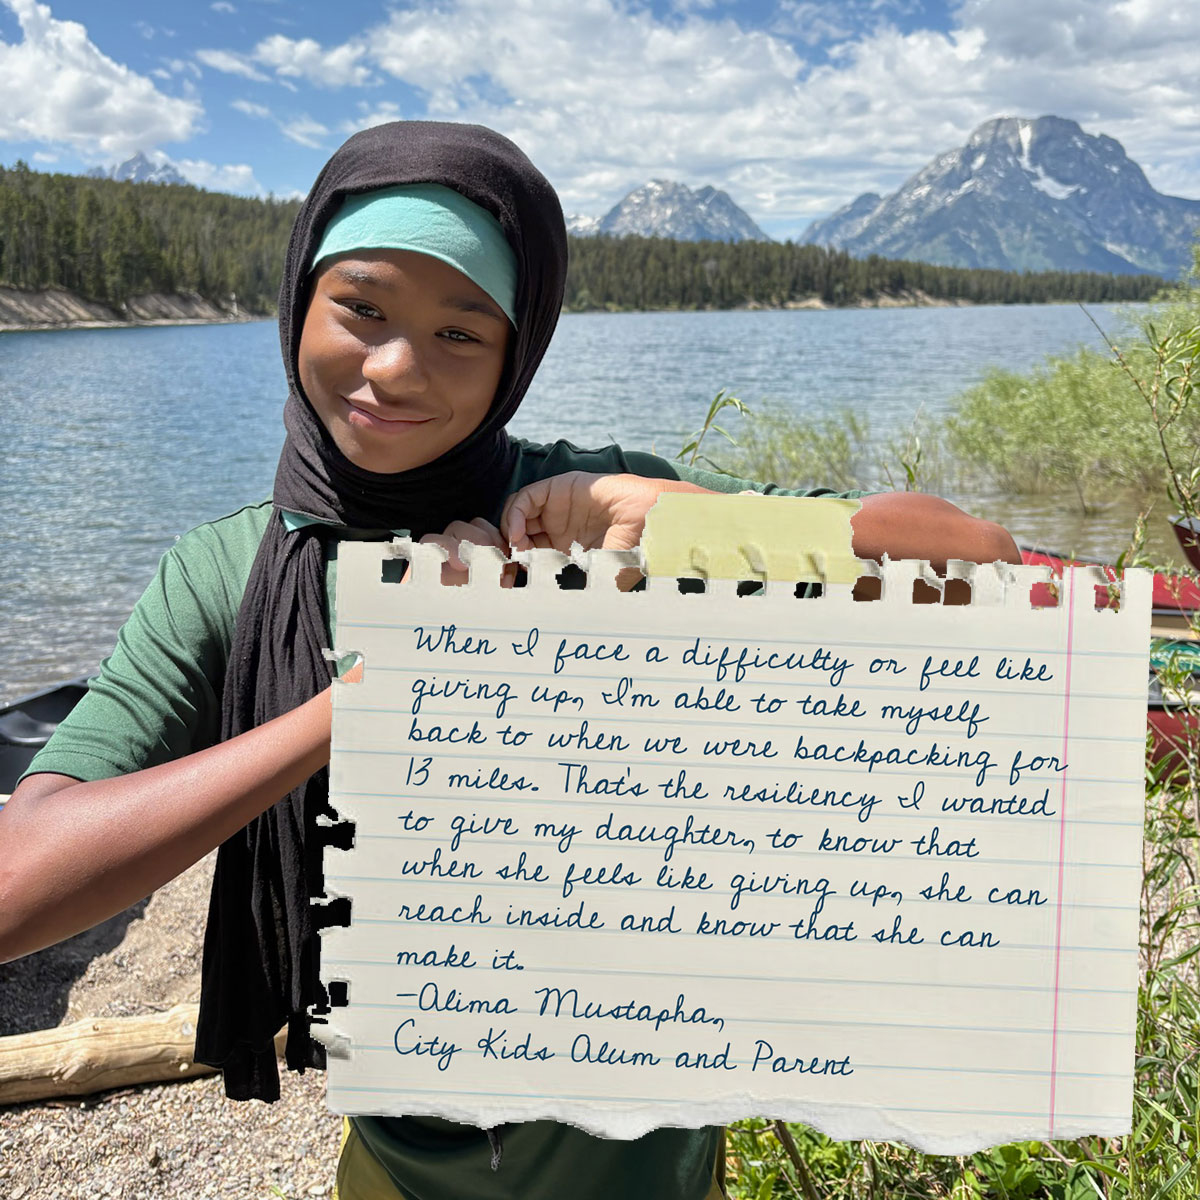 When I face a difficulty or feel like
giving up, I'm able to take myself
back to when we were backpacking for
13 miles. That's the resiliency I wanted
to give my daughter, to know that
when she feels like giving up, she can
reach inside and know that she can
make it.
-Alima Mustapha,
City Kids Alum and Parent